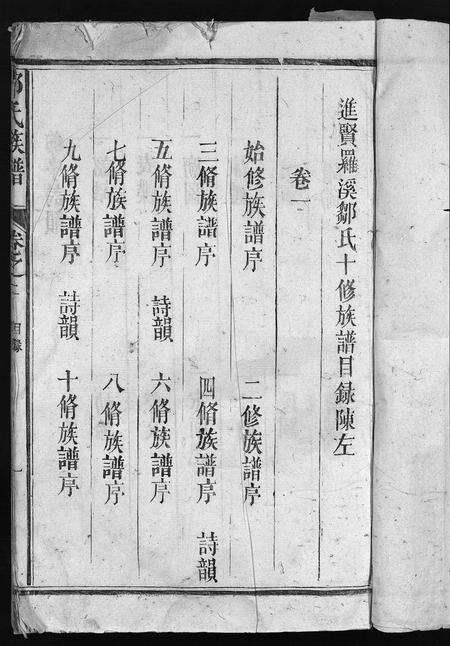 進賢羅溪鄒氏十修族譜目錄陳左
卷一
始修族譜序 二修族譜序
三脩族譜序 四脩族譜序 詩韻
五脩族譜序 詩韻 六脩族譜序
七脩族譜序 八脩族譜序
九脩族譜序 詩韻 十脩族譜序
氏族譜 卷之 目錄